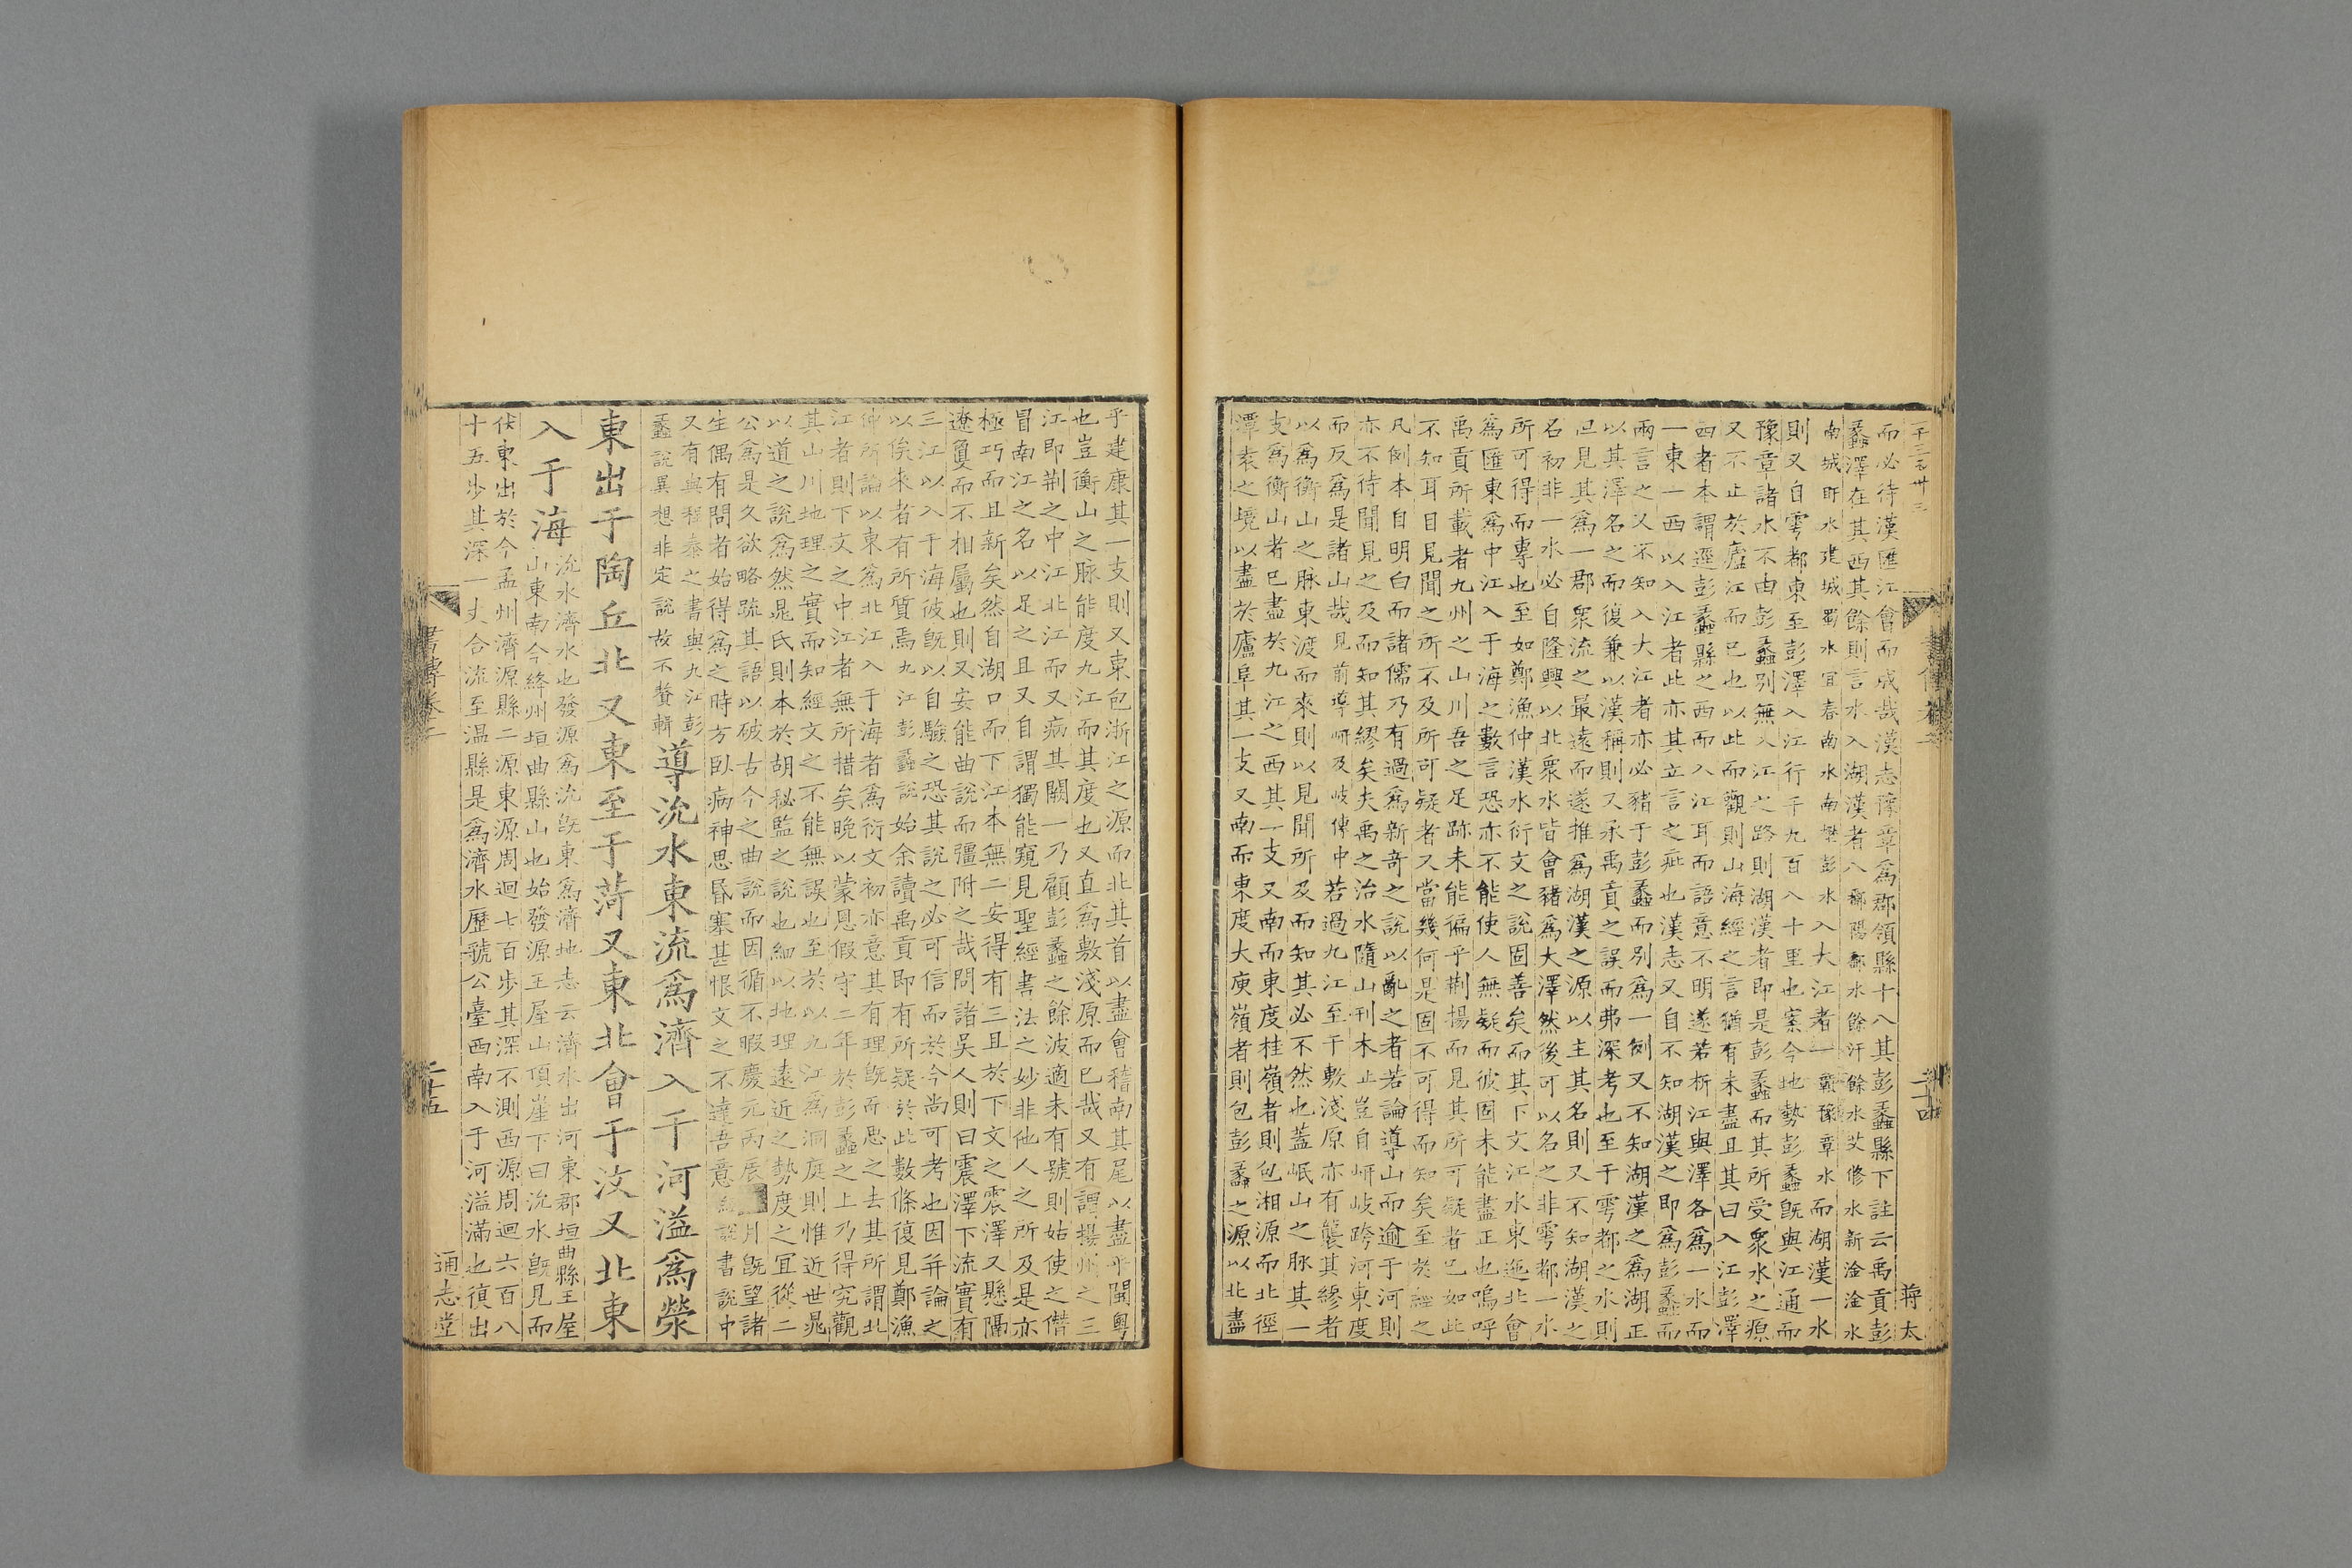 千三百卅三
書傳卷二
二十四
蔣太
而必待漢匯江會而成哉漢志豫章爲郡領縣十八其彭蠡縣下註云禹貢彭
蠡澤在其西其餘則言水入湖漢者八鄱陽鄱水餘汗餘水艾修水新淦淦水
南城旴水建城蜀水宜春南水南壄彭水入大江者一贛豫章水而湖漢一水
則又自雩都東至彭澤入江行千九百八十里也案今地勢彭蠡旣與江通而
豫章諸水不由彭蠡别無入江之路則湖漢者即是彭蠡而其所受衆水之源
又不止於廬江而已也以此而觀則山海經之言猶有未盡且其曰入江彭澤
西者本謂逕彭蠡縣之西而入江耳而語意不明遂若析江與澤各爲一水而
一東一西以入江者此亦其立言之疵也漢志又自不知湖漢之即爲彭蠡而
兩言之又不知入大江者亦必豬于彭蠡而别爲一例又不知湖漢之爲湖正
以其澤名之而復兼以漢稱則又承禹貢之誤而弗深考也至于雩都之水則
但見其爲一郡衆流之最遠而遂推爲湖漢之源以主其名則又不知湖漢之
名初非一水必自隆興以北衆水皆會豬爲大澤然後可以名之非雩都一水
所可得而專也至如鄭漁仲漢水衍文之說固善矣而其下文江水東迤北會
爲匯東爲中江入于海之數言恐亦不能使人無疑而彼固未能盡正也嗚呼
禹貢所載者九州之山川吾之足跡未能徧乎荆揚而見其所可疑者已如此
不知耳目見聞之所不及所可疑者又當幾何是固不可得而知矣至於經之
凡例本自明白而諸儒乃有過爲新奇之說以亂之者若論導山而逾于河則
亦不待聞見之及而知其繆矣夫禹之治水隨山刊木止豈自岍岐跨河東度
而反爲是諸山哉見前導岍及岐傳中若過九江至于敷淺原亦有襲其繆者
以爲衡山之脉東渡而來則以見聞所及而知其必不然也蓋岷山之脉其一
支爲衡山者已盡於九江之西其一支又南而東度桂嶺者則包湘源而北徑
潭袁之境以盡於廬阜其一支又南而東度大庾嶺者則包彭蠡之源以北盡
乎建康其一支則又東包浙江之源而北其首以盡會稽南其尾以盡乎閩粤
也豈衡山之脉能度九江而其度也又直爲敷淺原而已哉又有謂揚州之三
江即荆之中江北江而又病其闕一乃顧彭蠡之餘波適未有號則姑使之僭
冒南江之名以足之且又自謂獨能窺見聖經書法之妙非他人之所及是亦
極巧而且新矣然自湖口而下江本無二安得有三且於下文之震澤又懸隔
遼敻而不相屬也則又安能曲說而彊附之哉問諸吳人則曰震澤下流實有
三江以入于海彼旣以自驗之恐其說之必可信而於今尚可考也因并論之
以俟來者有所質焉九江彭蠡說始余讀禹貢即有所疑於此數條復見鄭漁
仲所論以東爲北江入于海者爲衍文初亦意其有理旣而思之去其所謂北
江者則下文之中江者無所措矣晚以蒙恩假守二年於彭蠡之上乃得究觀
其山川地理之實而知經文之不能無誤也至於以九江爲洞庭則惟近世晁
以道之說爲然晁氏則本於胡秘監之說也細以地理遠近之勢度之宜從二
公爲是久欲略疏其語以破古今之曲說而因循不暇慶元丙辰月旣望諸
生偶有問者始得爲之時方臥病神思昏塞甚恨文之不達吾意爲說書說中
又有與程泰之書與九江彭蠡說異想非定說故不贅輯導沇水東流爲濟入于河溢爲滎
東出于陶丘北又東至于菏又東北會于汶又北東
入于海沇水濟水也發源爲沇旣東爲濟地志云濟水出河東郡垣曲縣王屋山東南今絳州垣曲縣山也始發源王屋山頂崖下曰沇水旣見而
伏東出於今孟州濟源縣二源東源周迴七百步其深不測西源周迴六百八
十五步其深一丈合流至温縣是爲濟水歷虢公臺西南入于河溢滿也復出
書傳卷二
二十五
通志堂